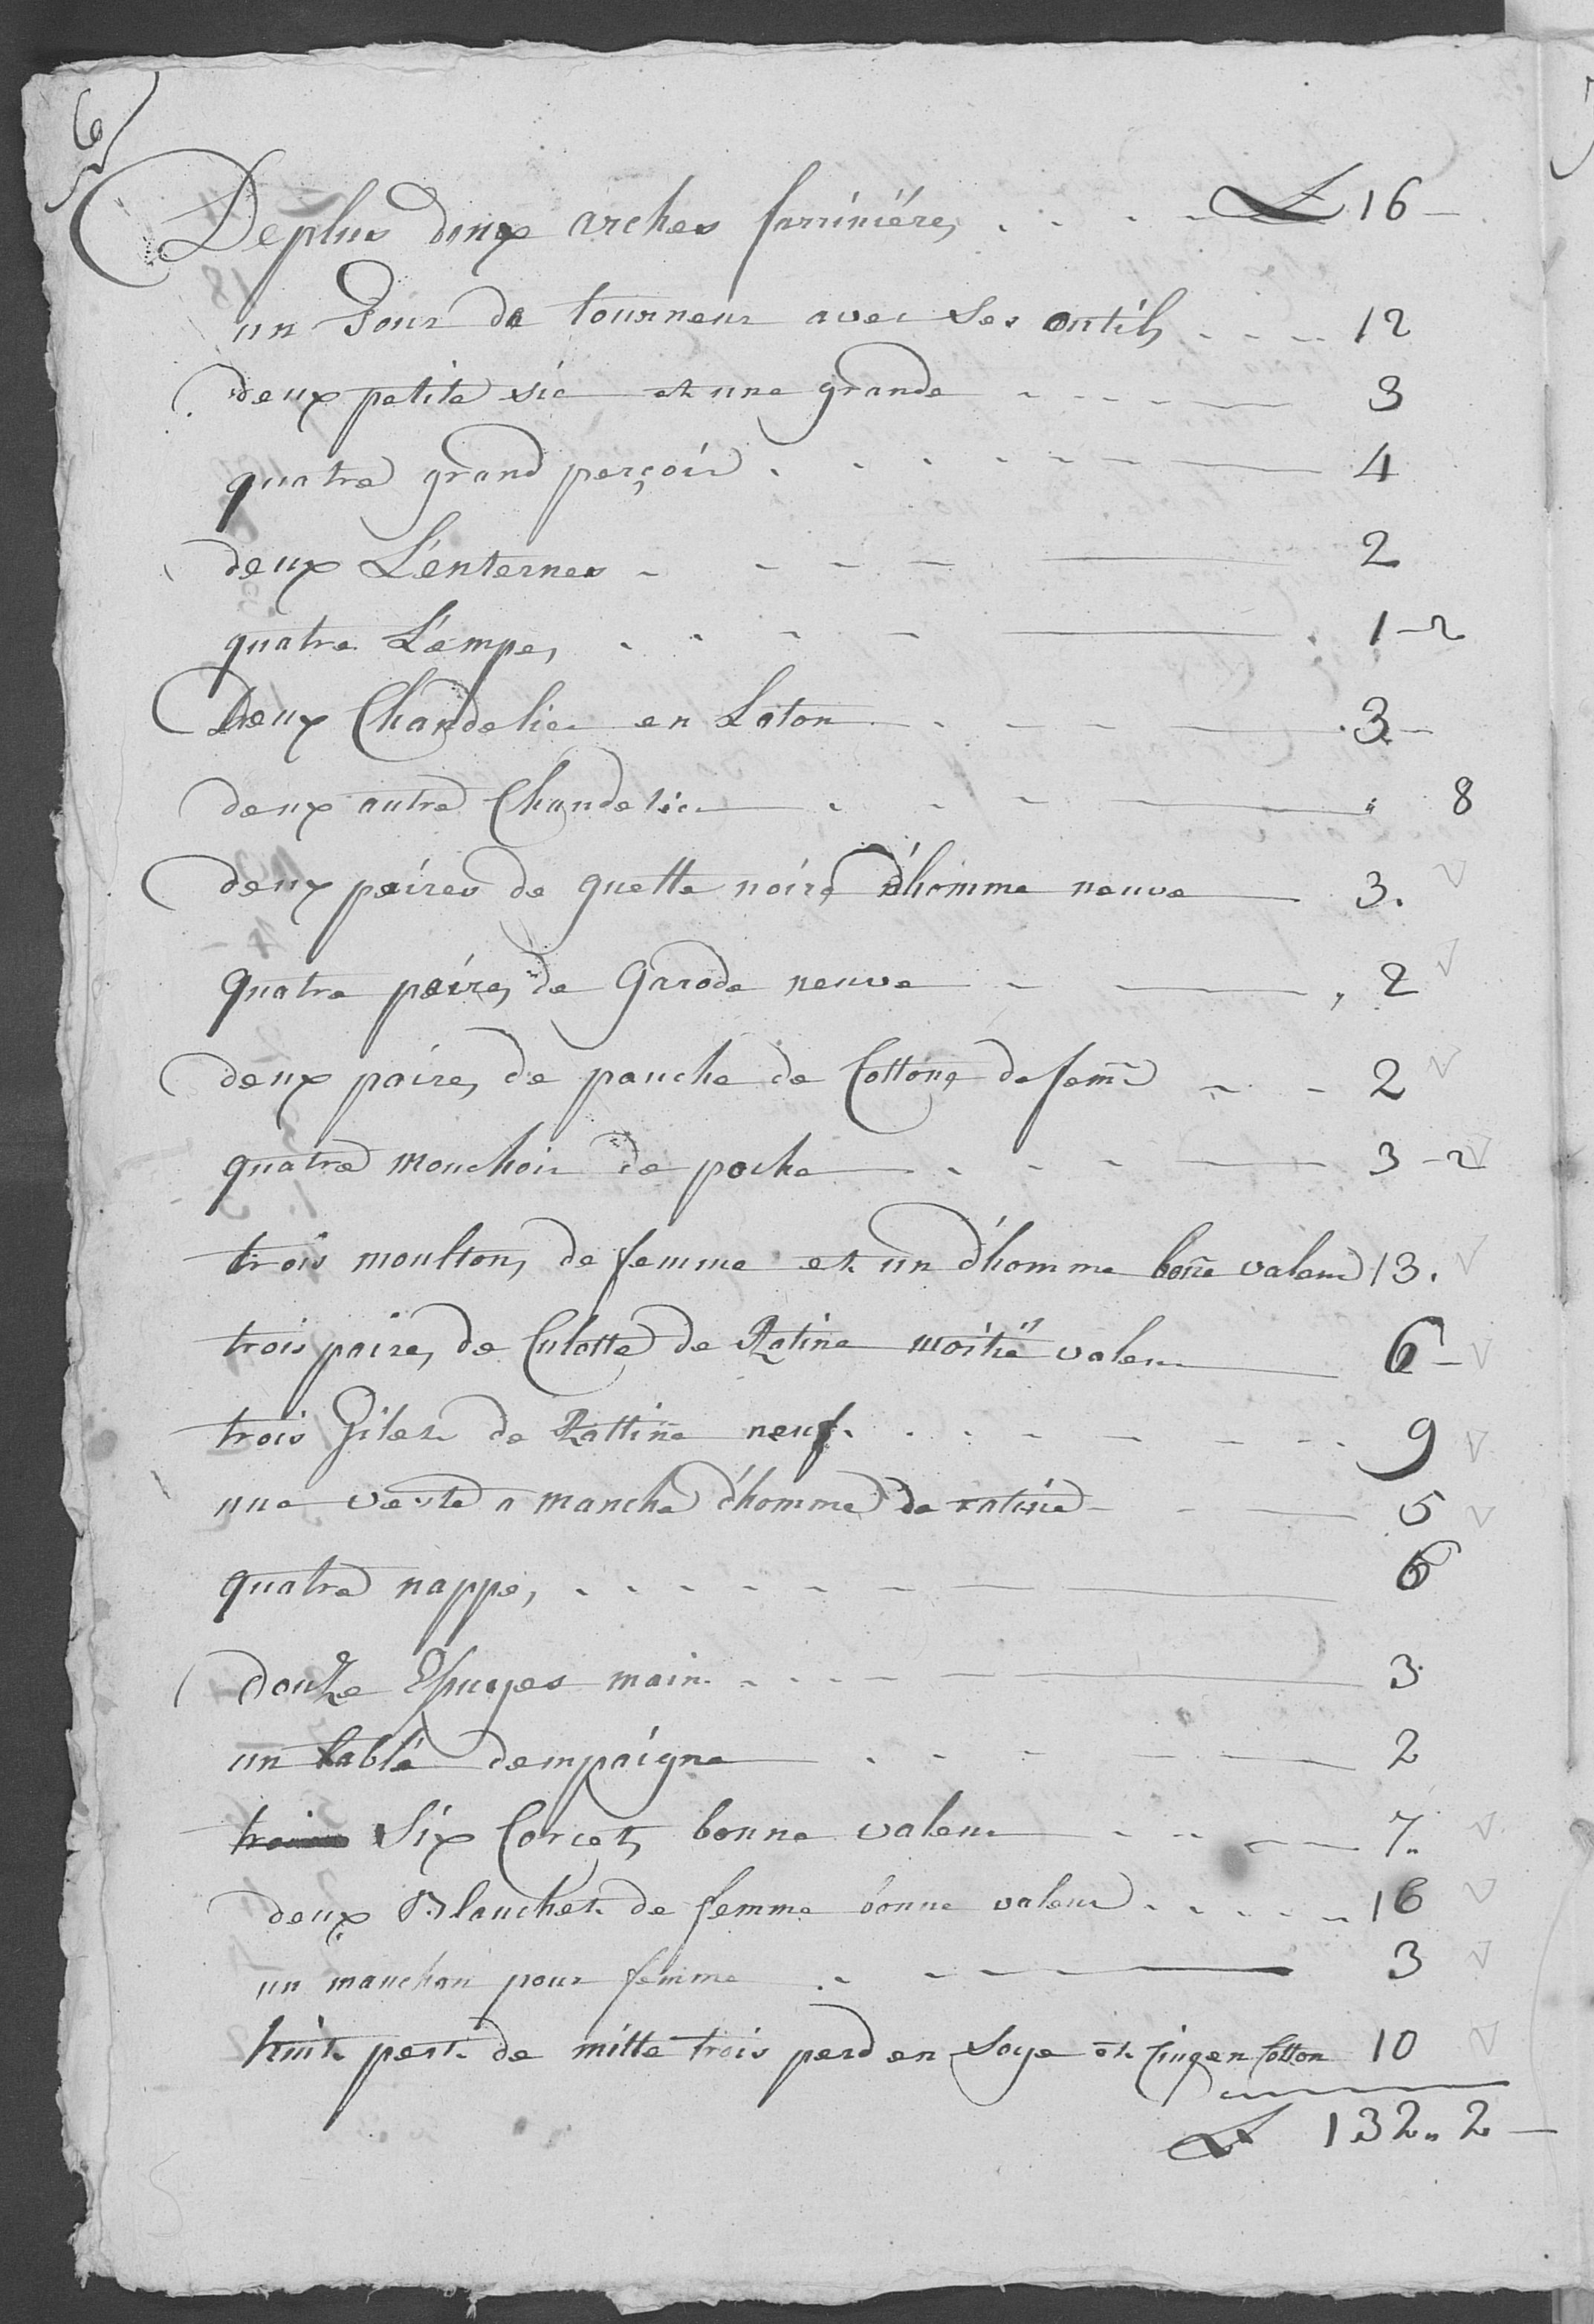 6
De plus deux arches farrinières £ 16 —
un Tour de tourneur avec Ses outils 12
deux petite sie et une grande 3
quatre grand perçoir 4
deux L'enternes 2
quatre L'empes 1 - 2
Deux Chandelier en Laton 3 —
deux autre Chandelier " 8
deux paires de guette noire d'homme neuve 3.
quatre paires de Garode neuve 2
deux paires de pauche de Cottone de fem̃e 2
quatre mouchoir de poche 3 - 2
trois moultons de femme et un d'homme boñe valeur 13.
trois paires de Culotte de Ratine moitié valeur 6 —
trois Gilet de Rattine neuf. 9
une veste a manche d'homme de ratine 5
quatre nappes 6
douze Epuyes main 3
un tablé dempaigne 2
Six Corcets bonne valeur 7.
deux Blanchet de femme bonne valeur 16
un manchon pour femme 3
huit pert de mitte trois perd en Soye et Cinq en Cotton 10
£ 132 " 2 —